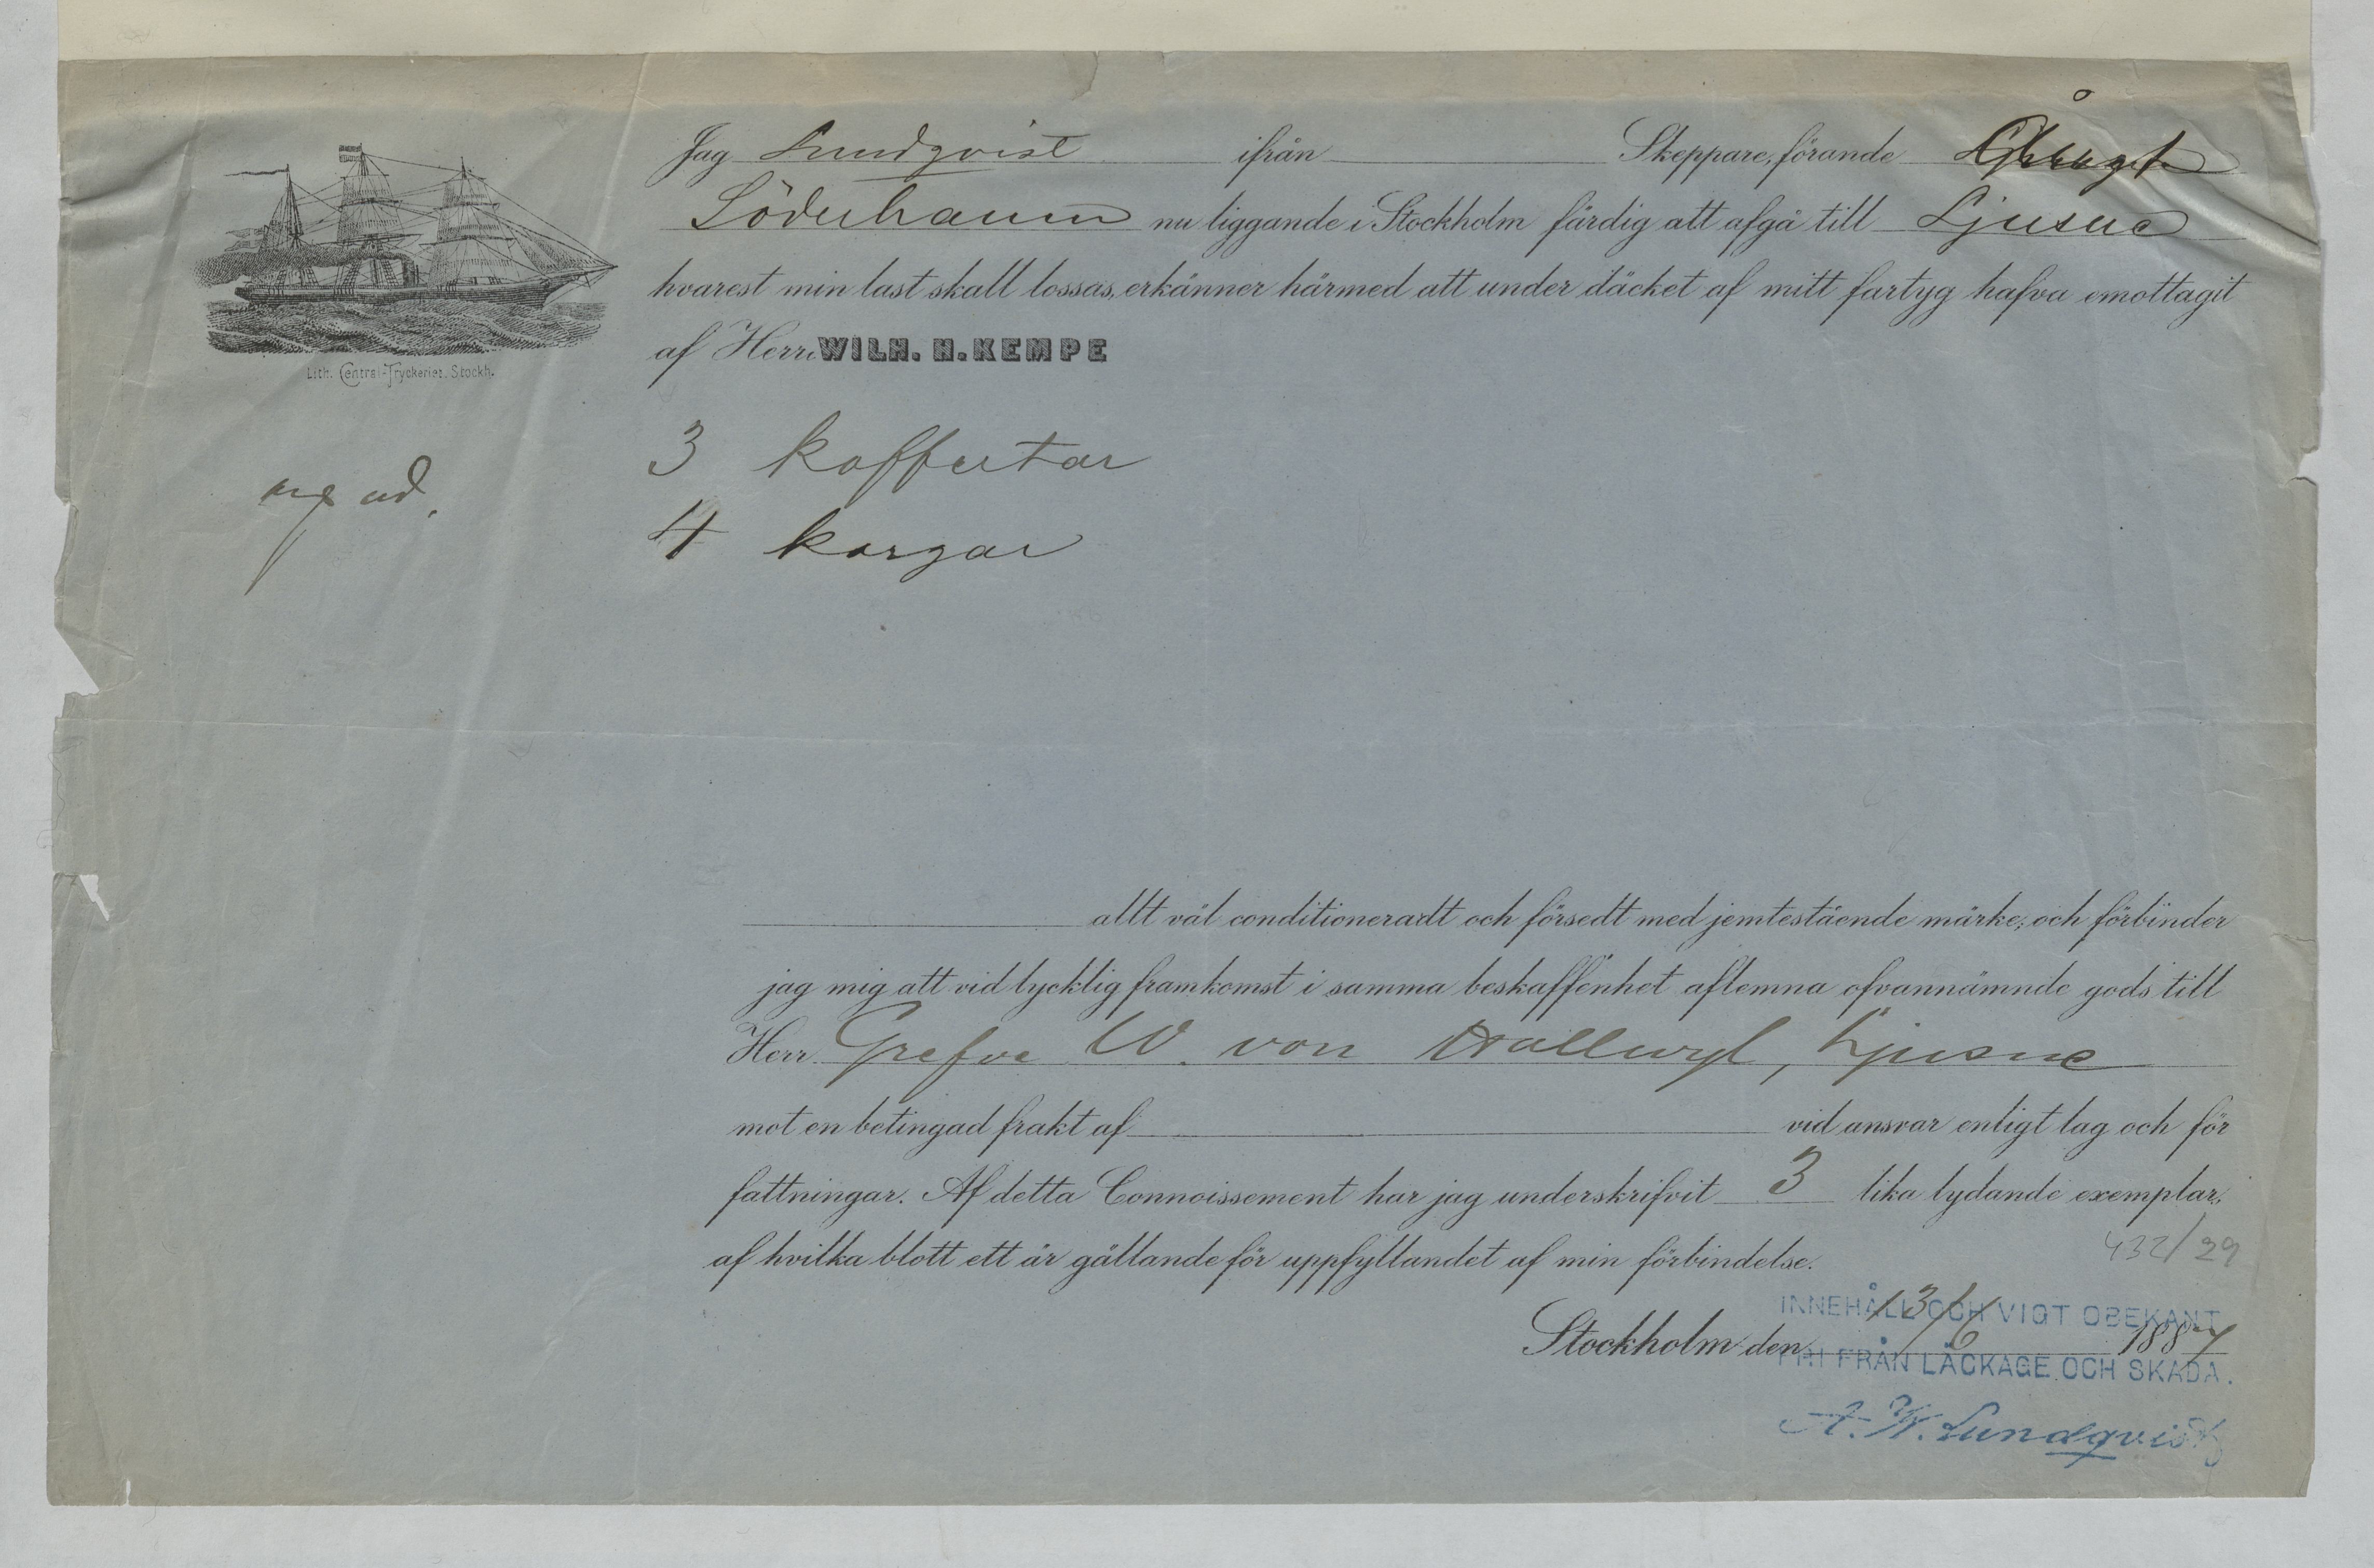 Jag Lundqvist ifrån Skeppare, förande Ångf.
Söderhamn nu liggande i Stockholm färdig att afgå till Ljusne
hvarest min last skall lossas, erkänner härmed att under däcket af mitt fartyg hafva emottagit
af Herr WILH. H. KEMPE
Lith. Central-Tryckeriet. Stockh.
3 koffertar
4 korgar
allt väl conditioneradt och försedt med jemtestående märke; och förbinder
jag mig att vid lycklig framkomst i samma beskaffenhet aflemna ofvannämnde gods till
Herr Grefve W. von Hallwyl, Ljusne
mot en betingad frakt af vid ansvar enligt lag och för
fattningar. Af detta Connoissement har jag underskrifvit 3 lika lydande exemplar,
af hvilka blott ett är gällande för uppfyllandet af min förbindelse.
432/29
INNEHÅLL OCH VIGT OBEKANT
Stockholm den 13/6 1887
FRI FRÅN LÄCKAGE OCH SKADA.
A. W. Lundqvist